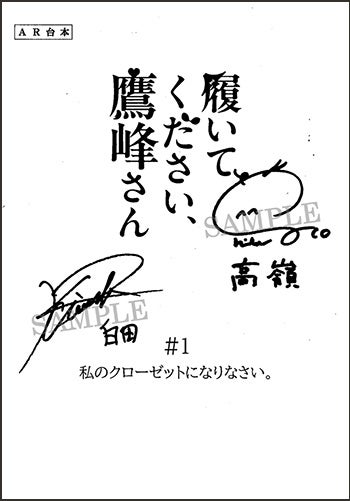 AR台本
履いて
ください、
鷹峰さん
SAMPLE
高嶺
SAMPLE
白田
#1
私のクローゼットになりなさい。